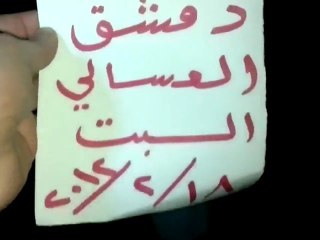 دمشق
العسالي
السبت
٢٠١٢/٢/١٨